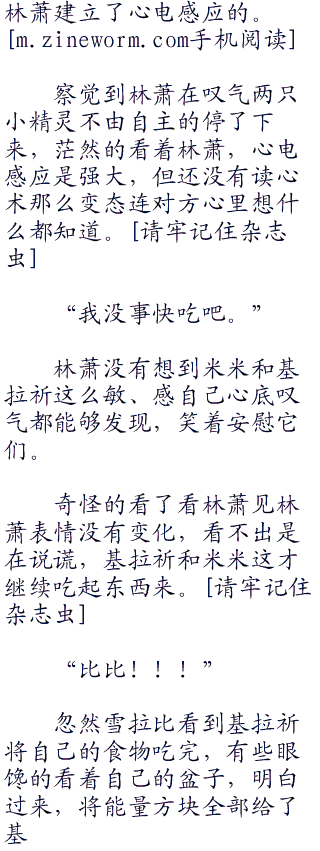 林萧建立了心电感应的。
[m.zineworm.com手机阅读]
察觉到林萧在叹气两只
小精灵不由自主的停了下
来，茫然的看着林萧，心电
感应是强大，但还没有读心
术那么变态连对方心里想什
么都知道。[请牢记住杂志
虫]
“我没事快吃吧。”
林萧没有想到米米和基
拉祈这么敏、感自己心底叹
气都能够发现，笑着安慰它
们。
奇怪的看了看林萧见林
萧表情没有变化，看不出是
在说谎，基拉祈和米米这才
继续吃起东西来。[请牢记住
杂志虫]
“比比！！！”
忽然雪拉比看到基拉祈
将自己的食物吃完，有些眼
馋的看着自己的盆子，明白
过来，将能量方块全部给了
基